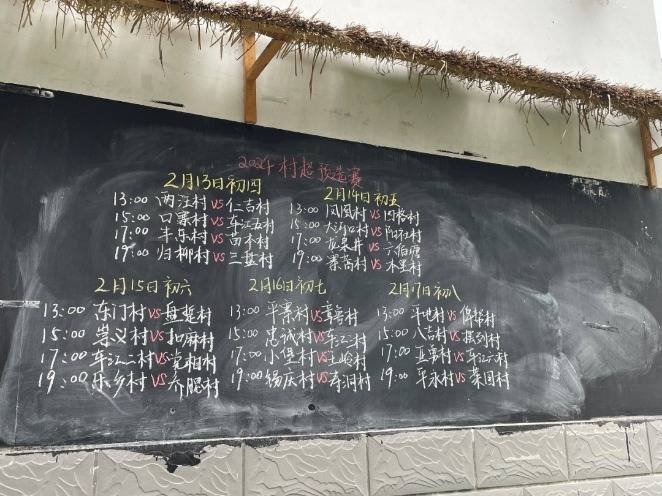 2024村超预选赛
2月13日初四
13:00 两汪村VS仁吉村
15:00 口寨村VS车江五村
17:00 丰乐村VS苗本村
19:00 归柳村VS三盆村
2月14日初五
13:00 凤凰村VS四格村
15:00 大沂口村VS阳和村
17:00 VS六佰塘
19:00 寨蒿村VS木里村
2月15日初六
13:00 东门村VS村
15:00 崇义村VS扣麻村
17:00 车江二村VS党相村
19:00 乐乡村VS乔腮村
2月16日初七
13:00 平寨村VS章鲁村
15:00 忠诚村VS车江村
17:00 小堡村VS王岭村
19:00 锡庆村VS寿洞村
2月17日初八
13:00 斗地村VS保榕村
15:00 八吉村VS村
17:00 VS车江六村
19:00 平永村VS菜园村